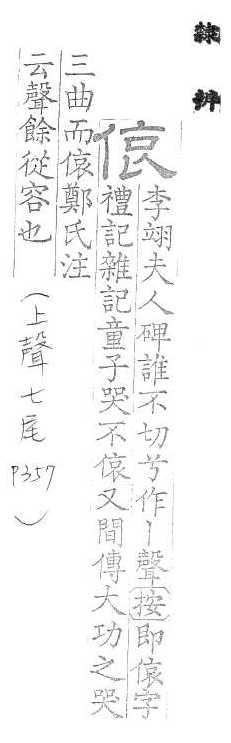 隸辨
偯
李翊夫人碑誰不切兮作丨聲按即偯字
禮記雜記童子哭不偯又間傳大功之哭
三曲而偯鄭氏注
云聲餘從容也
(上聲七尾
P357)